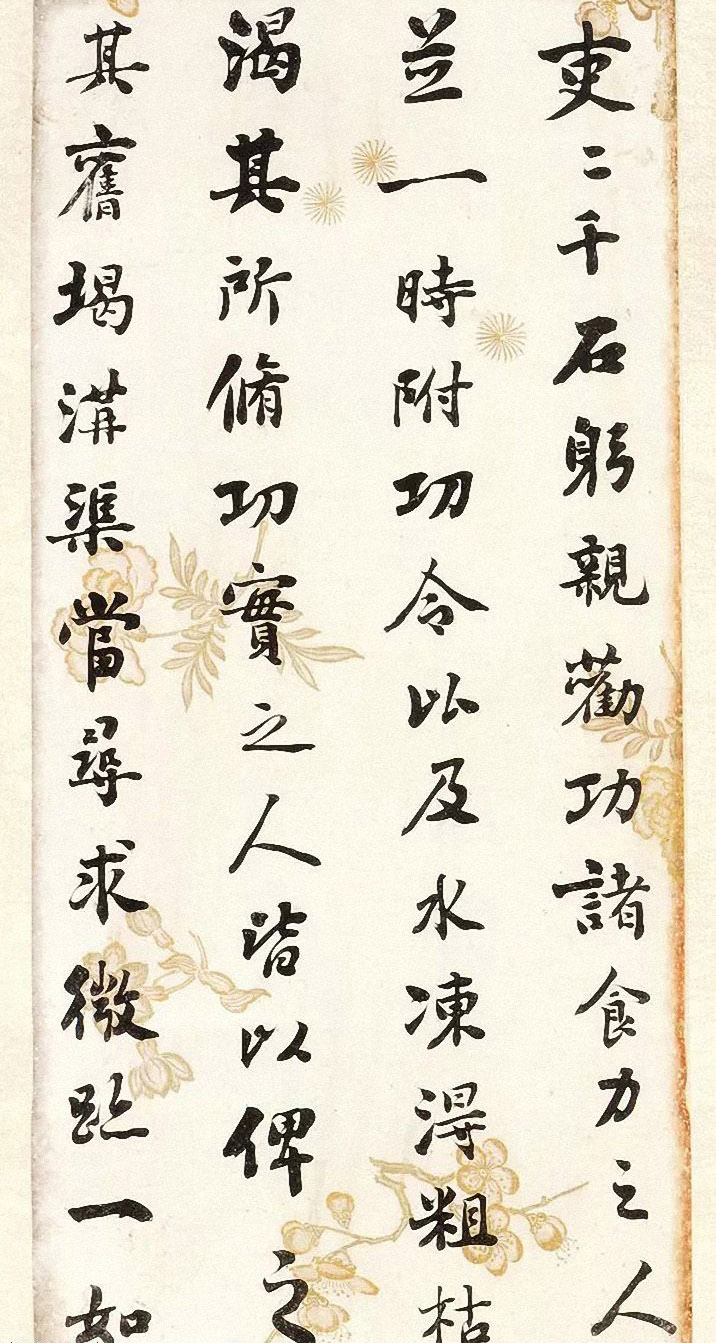 吏二千石躬親勸功諸食力之人
並一時附功令以及水凍得粗枯
渴其所脩功實之人皆以俾之
其舊堨溝渠當尋求微趾一如